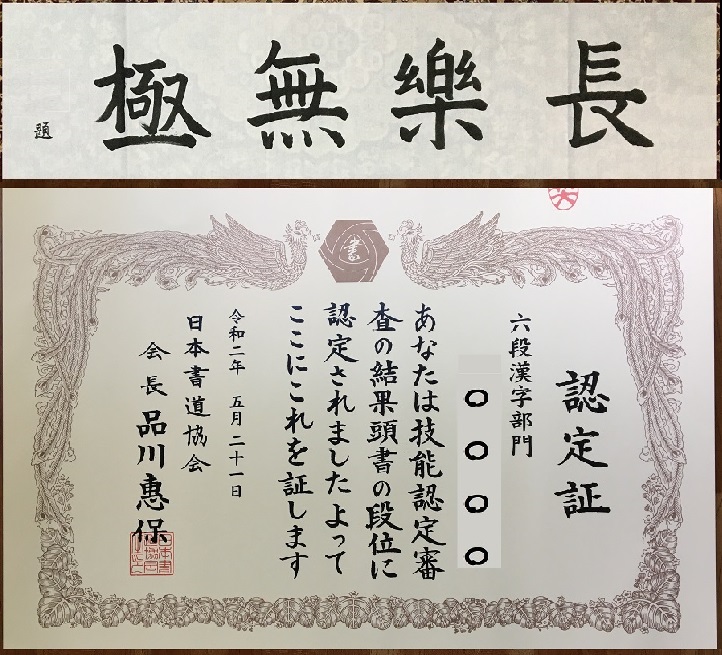 長樂無極
題
書
認定証
六段漢字部門
○○○○
あなたは技能認定審
査の結果頭書の段位に
認定されましたよって
ここにこれを証します
令和二年 五月二十一日
日本書道協会
会長 品川惠保